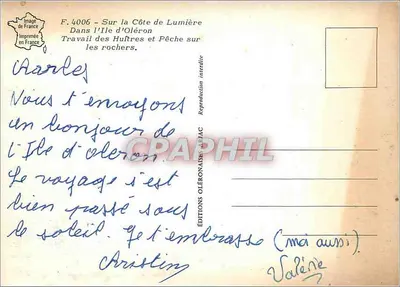 Image
de France
Imprimée
en France
F. 4006 - Sur la Côte de Lumière
Dans l'Ile d'Oléron
Travail des Huîtres et Pêche sur
les rochers.
Charles
Nous t'envoyons
un bonjour de
l'Ile d'oléron
Le voyage s'est
bien passé sous
le soleil. Je t'embrasse (moi aussi)
Valérie
EDITIONS OLÉRONAISES
Reproduction interdite
CPARAPHIL